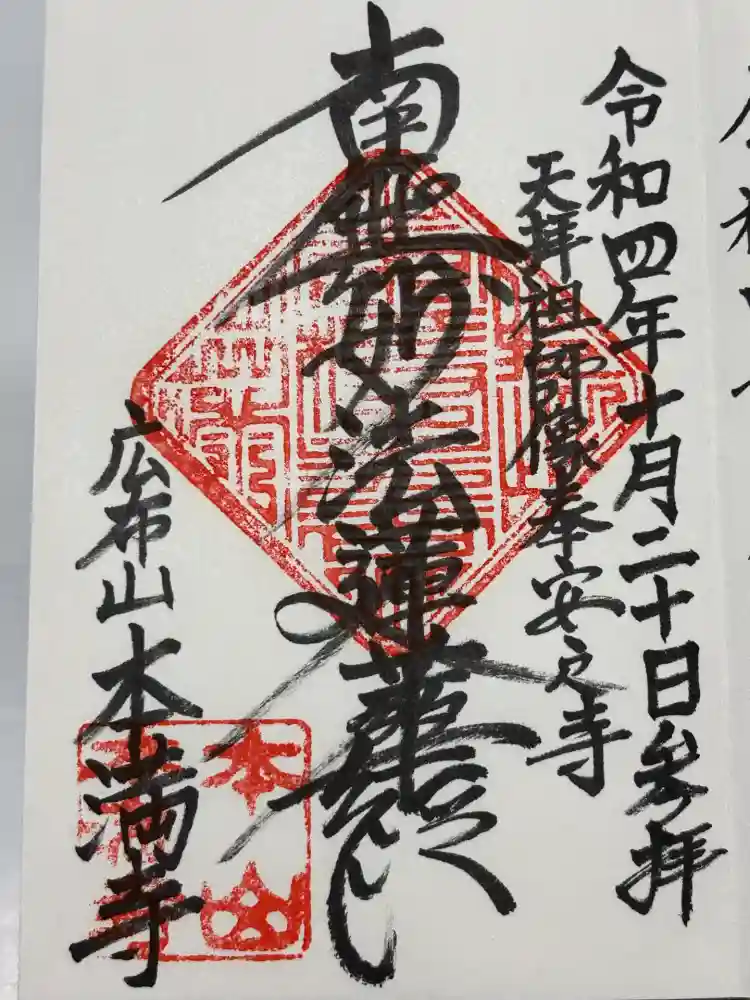 令和四年十月二十日参拝
天拝祖師像奉安之寺
南無妙法蓮華経
広布山本満寺
本山